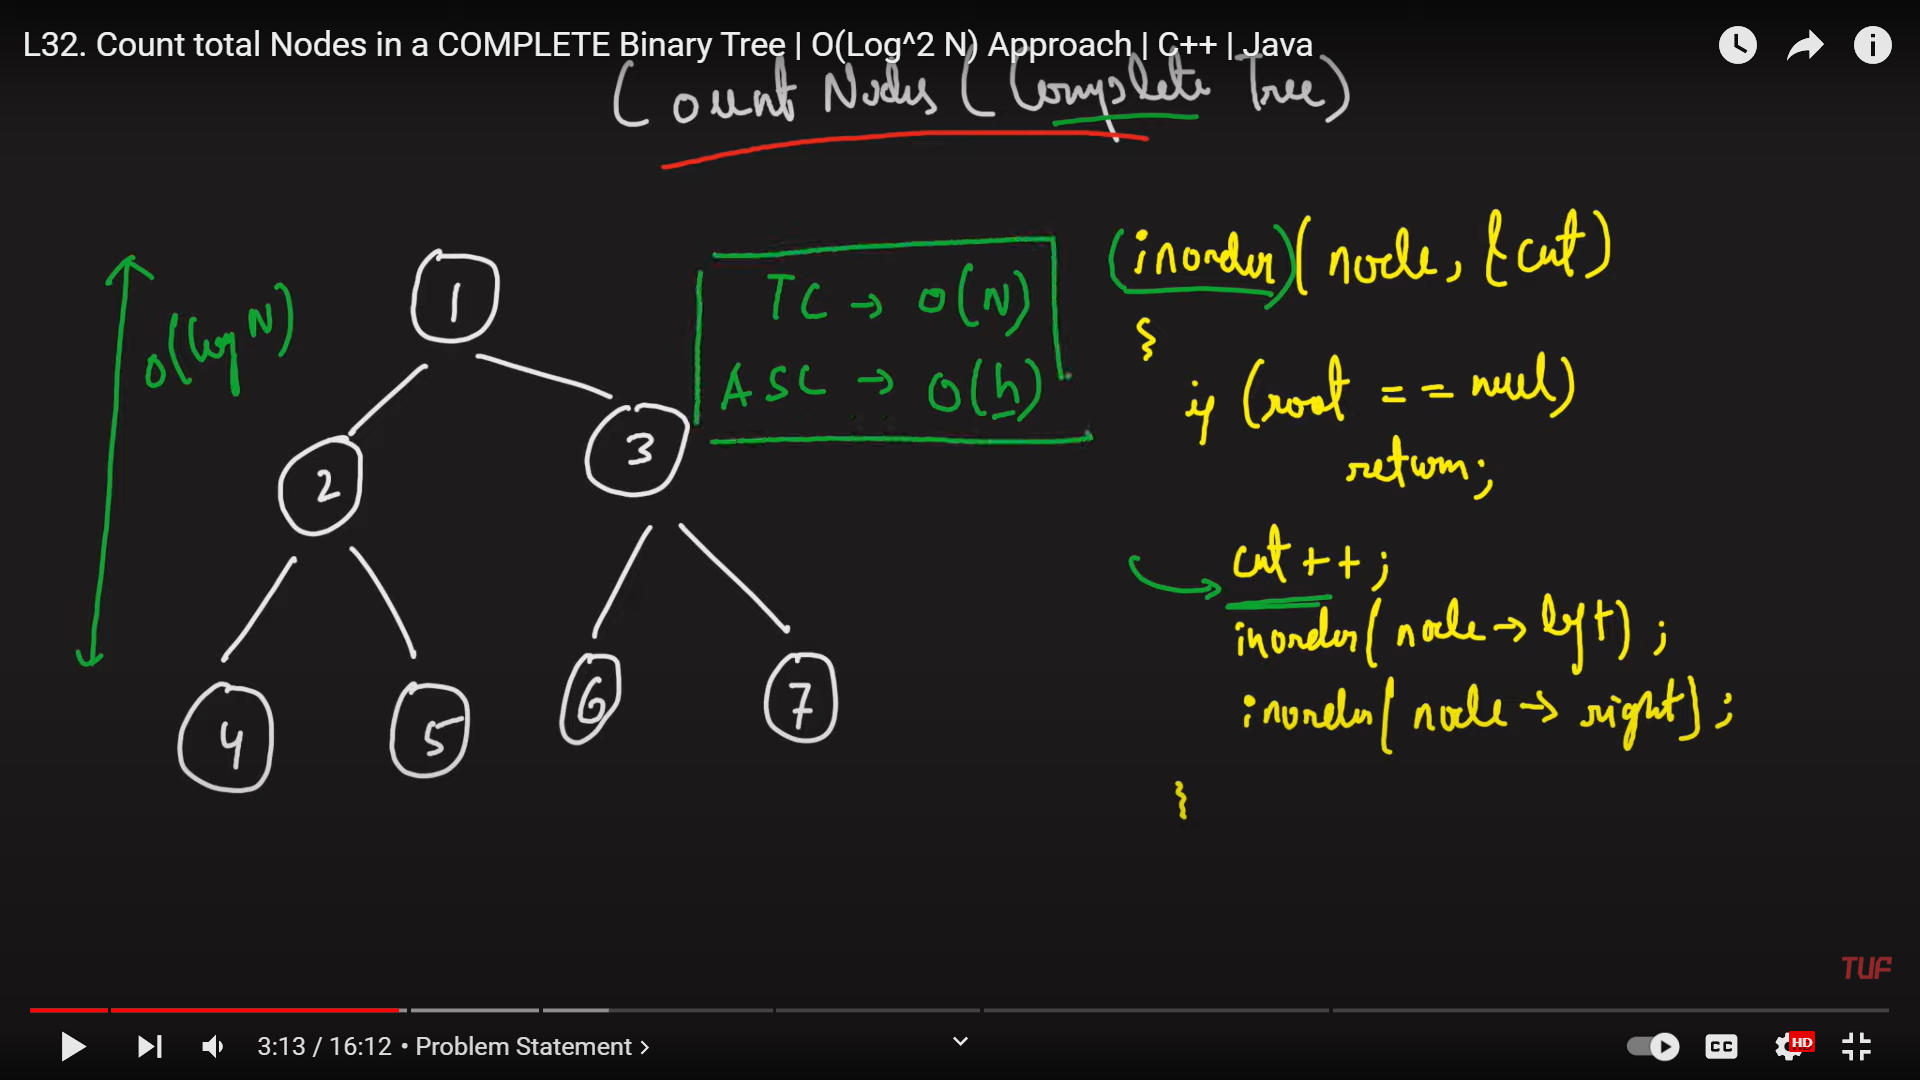 L32. Count total Nodes in a COMPLETE Binary Tree | O(Log^2 N) Approach | C++ | Java
Count Nodes (Complete Tree)
O(log N)
1
2
3
4
5
6
7
TC → O(N)
ASC → O(h)
(inorder)(node, &cnt)
{
if (root == null)
return;
cnt++;
inorder(node→left);
inorder(node→right);
}
TUF
3:13 / 16:12 • Problem Statement >
CC
HD